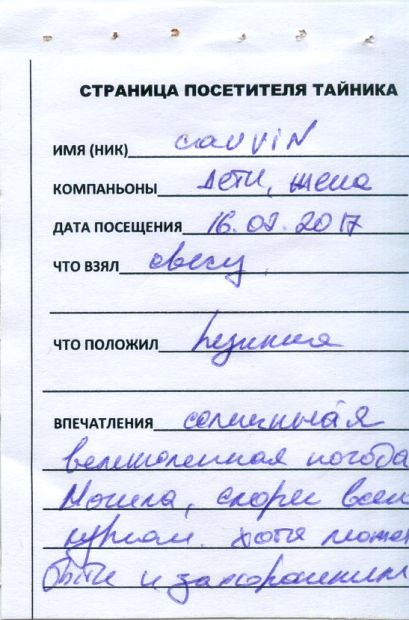 СТРАНИЦА ПОСЕТИТЕЛЯ ТАЙНИКА
ИМЯ (НИК) cauviN
КОМПАНЬОНЫ Дети, жена
ДАТА ПОСЕЩЕНИЯ 16.08.2017
ЧТО ВЗЯЛ
ЧТО ПОЛОЖИЛ
ВПЕЧАТЛЕНИЯ солнечная
великолепная погода
Могила, скорее всего
курган. Хотя може
быть и захоронение